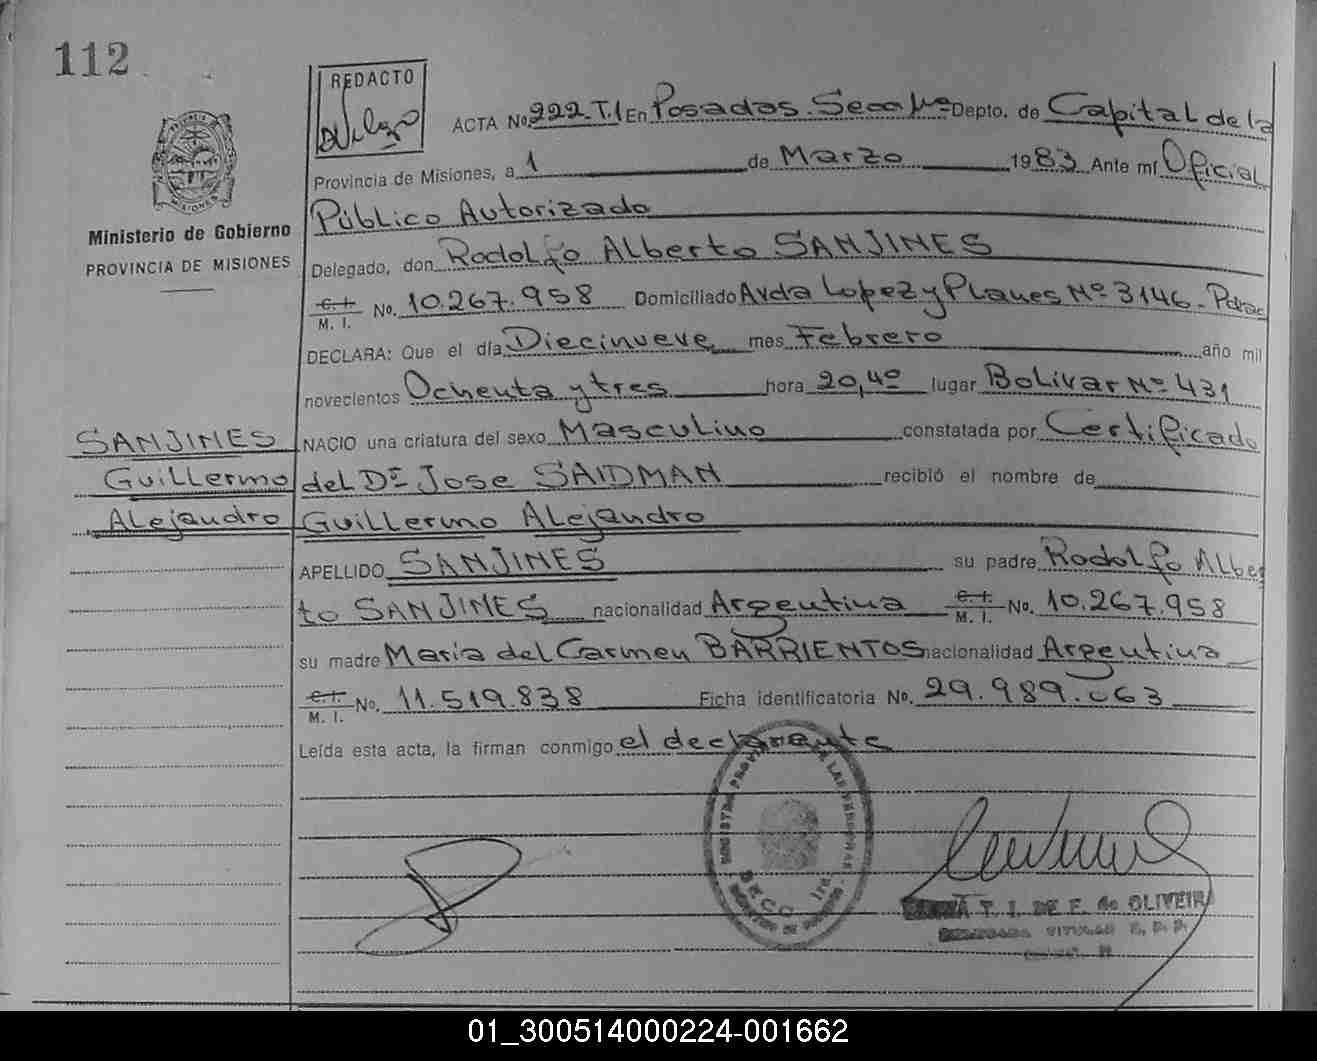 112
REDACTO
ACTA No. 222. T.1 En Posadas. Secc 1ra Depto. de Capital de la
Provincia de Misiones, a 1 de Marzo 1983 Ante mí Oficial
Ministerio de Gobierno
PROVINCIA DE MISIONES
Público Autorizado
Delegado, don Rodolfo Alberto SANJINES
C. I. M. I. No. 10.267.958 Domiciliado Avda Lopez y Planes Nº 3146-
DECLARA: Que el día Diecinueve mes Febrero año mil
novecientos Ochenta y tres hora 20,40 lugar Bolivar Nº 431
SANJINES
Guillermo
Alejandro
NACIO una criatura del sexo Masculino constatada por Certificado
del Dr Jose SAIDMAN recibió el nombre de
Guillermo Alejandro
APELLIDO SANJINES su padre Rodolfo Alber
to SANJINES nacionalidad Argentina C. I. M. I. No. 10.267.958
su madre Maria del Carmen BARRIENTOS nacionalidad Argentina
C. I. M. I. No. 11.519.838 Ficha identificatoria No. 29.989.063
Leída esta acta, la firman conmigo el declarante
REGISTRO PROVINCIAL DE LAS PERSONAS
SECC. 1ra.
T. I. DE E. de OLIVEIRA
TITULAR
01_300514000224-001662